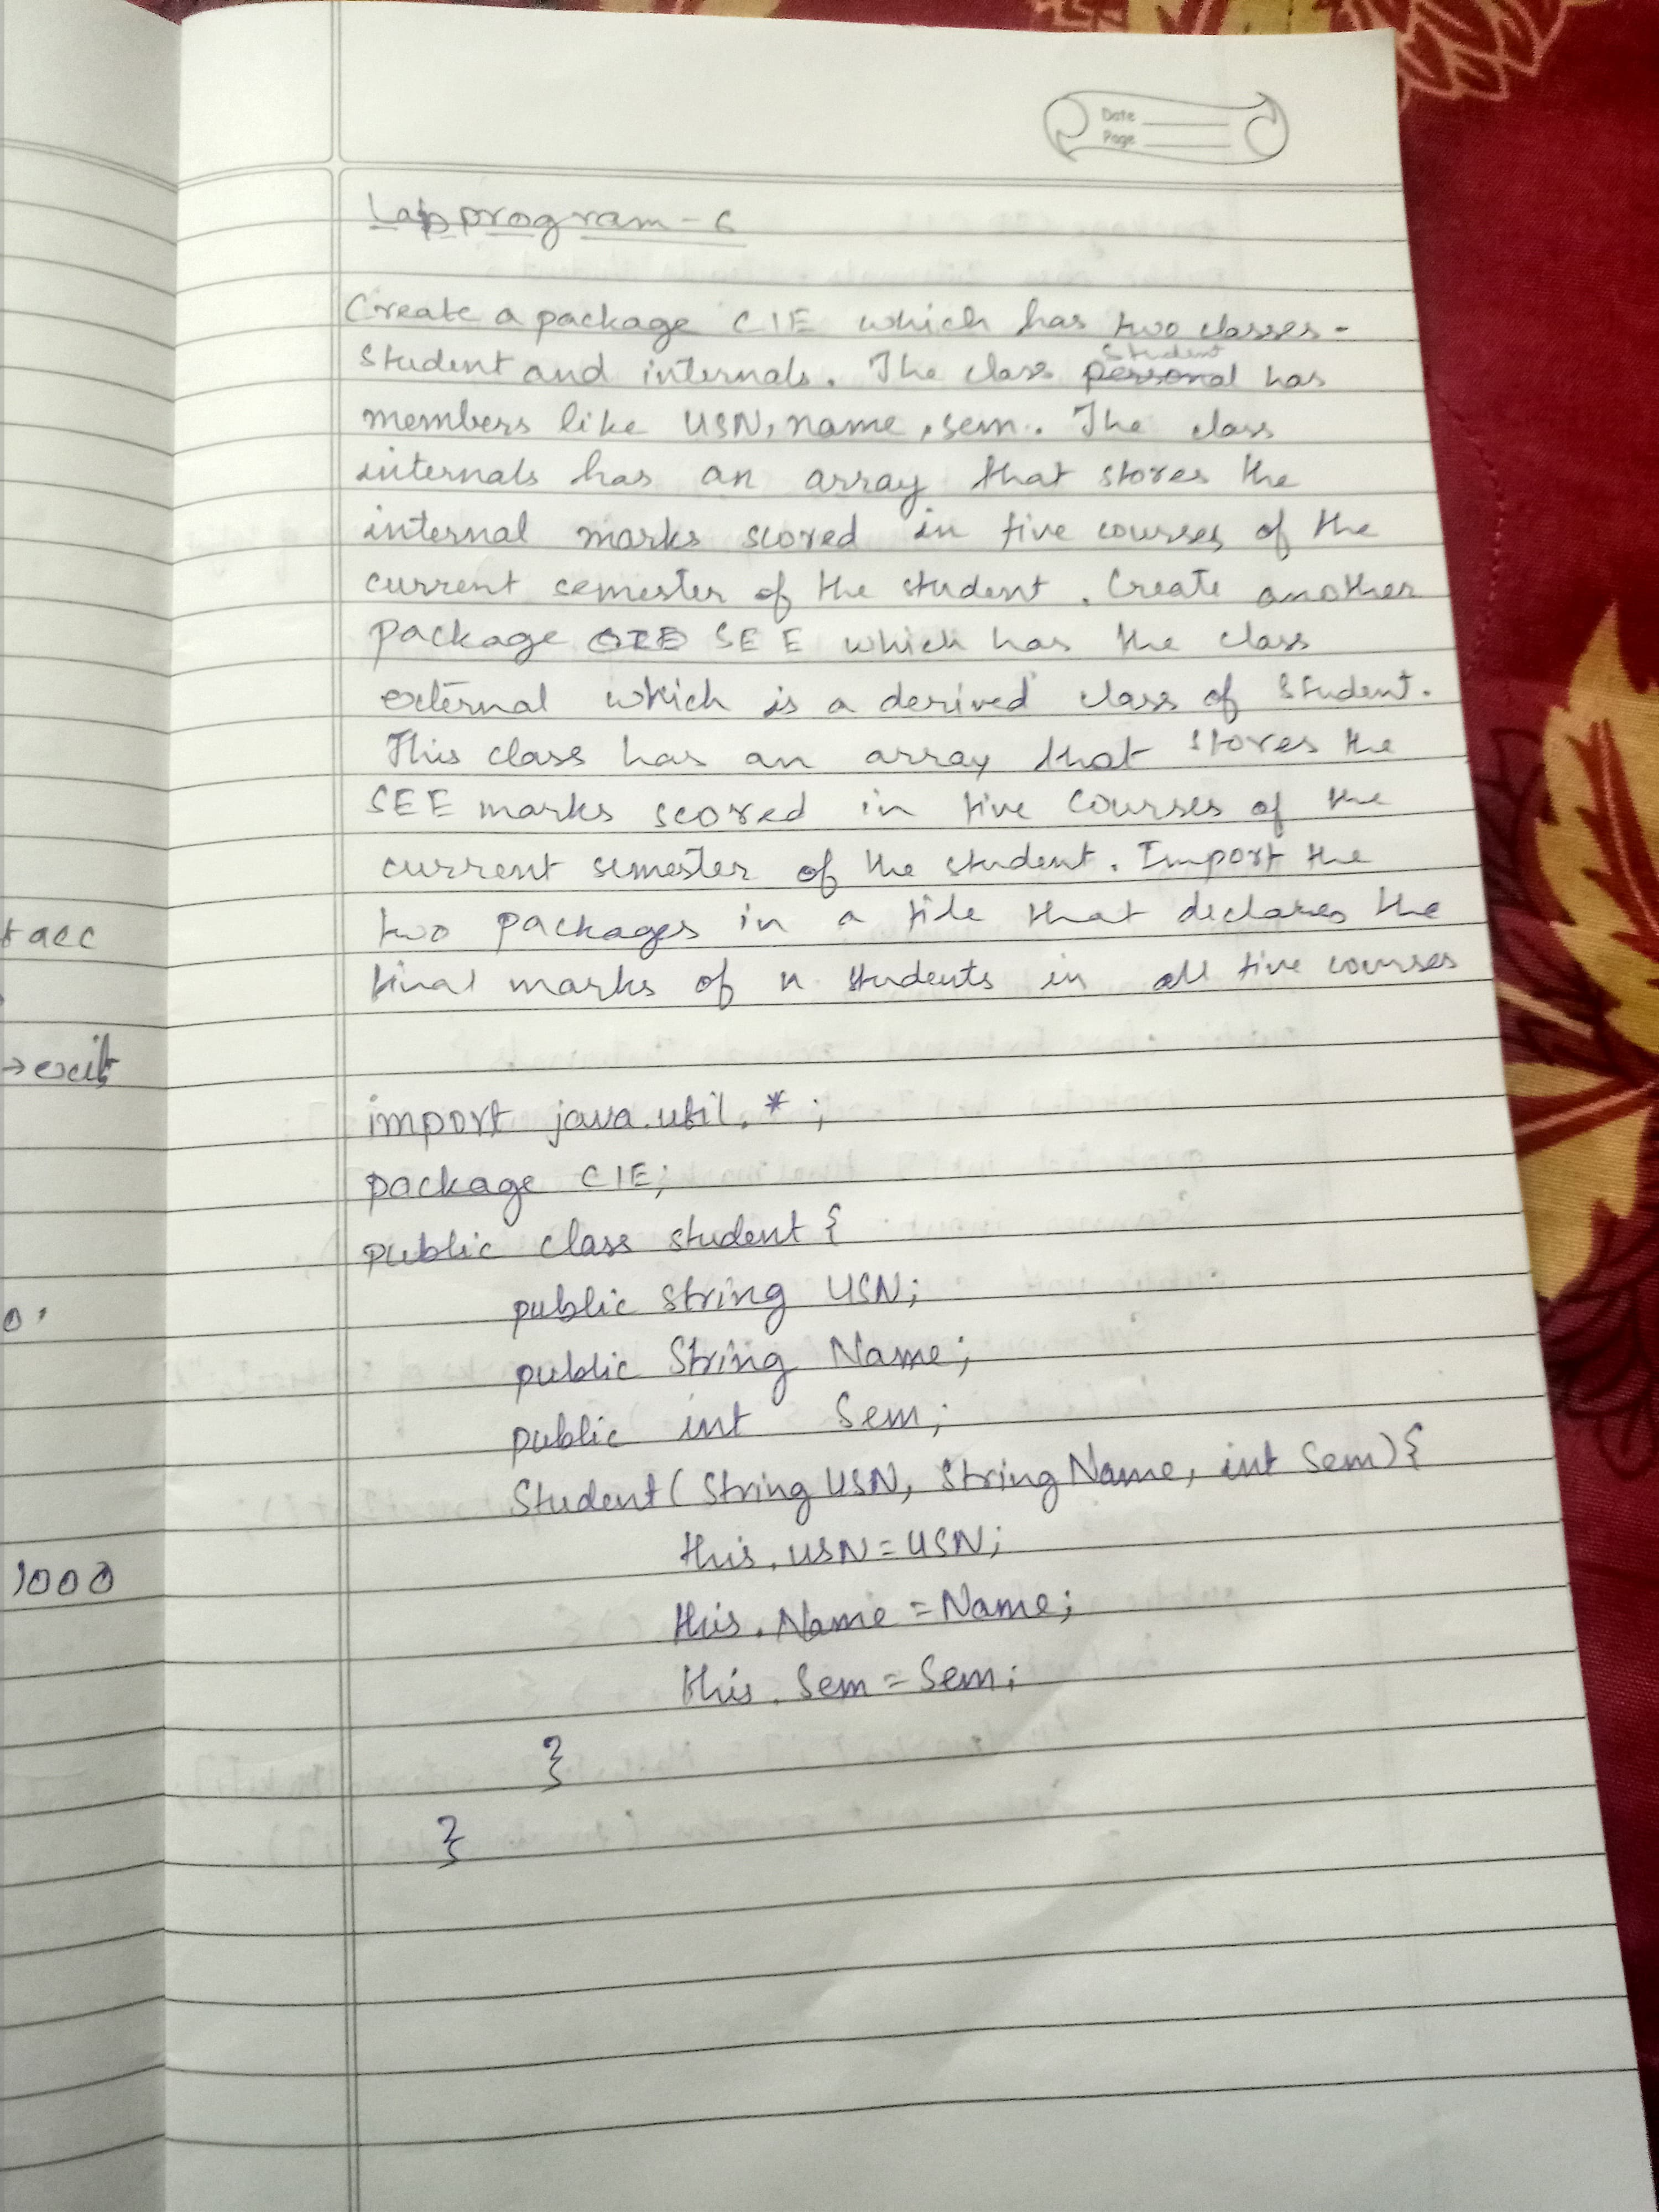 Date
Page
Lab program - 6
Create a package CIE which has two classes -
Student
Student and internals. The class personal has
members like USN, name, sem. The class
internals has an array that stores the
internal marks scored in five courses of the
current semester of the student. Create another
package SEE which has the class
external which is a derived class of Student.
This class has an array that stores the
SEE marks scored in five courses of the
current semester of the student. Import the
two packages in a file that declares the
final marks of n students in all five courses
import java.util.*;
package CIE;
public class student {
public String USN;
public String Name;
public int Sem;
Student (String USN, String Name, int Sem) {
this.USN = USN;
this.Name = Name;
this.Sem = Sem;
}
}
acc
→ exit
0.
1000